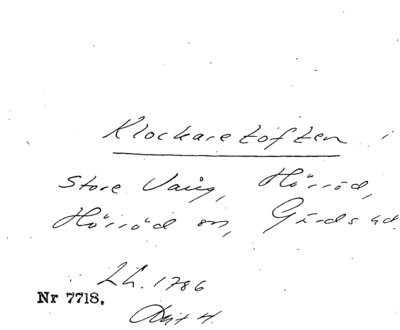 Klockaretoften
Store Vång, Hörröd,
Hörröd sn, Gärds hd.
LL. 1786
Nr 7718.
Akt 4.